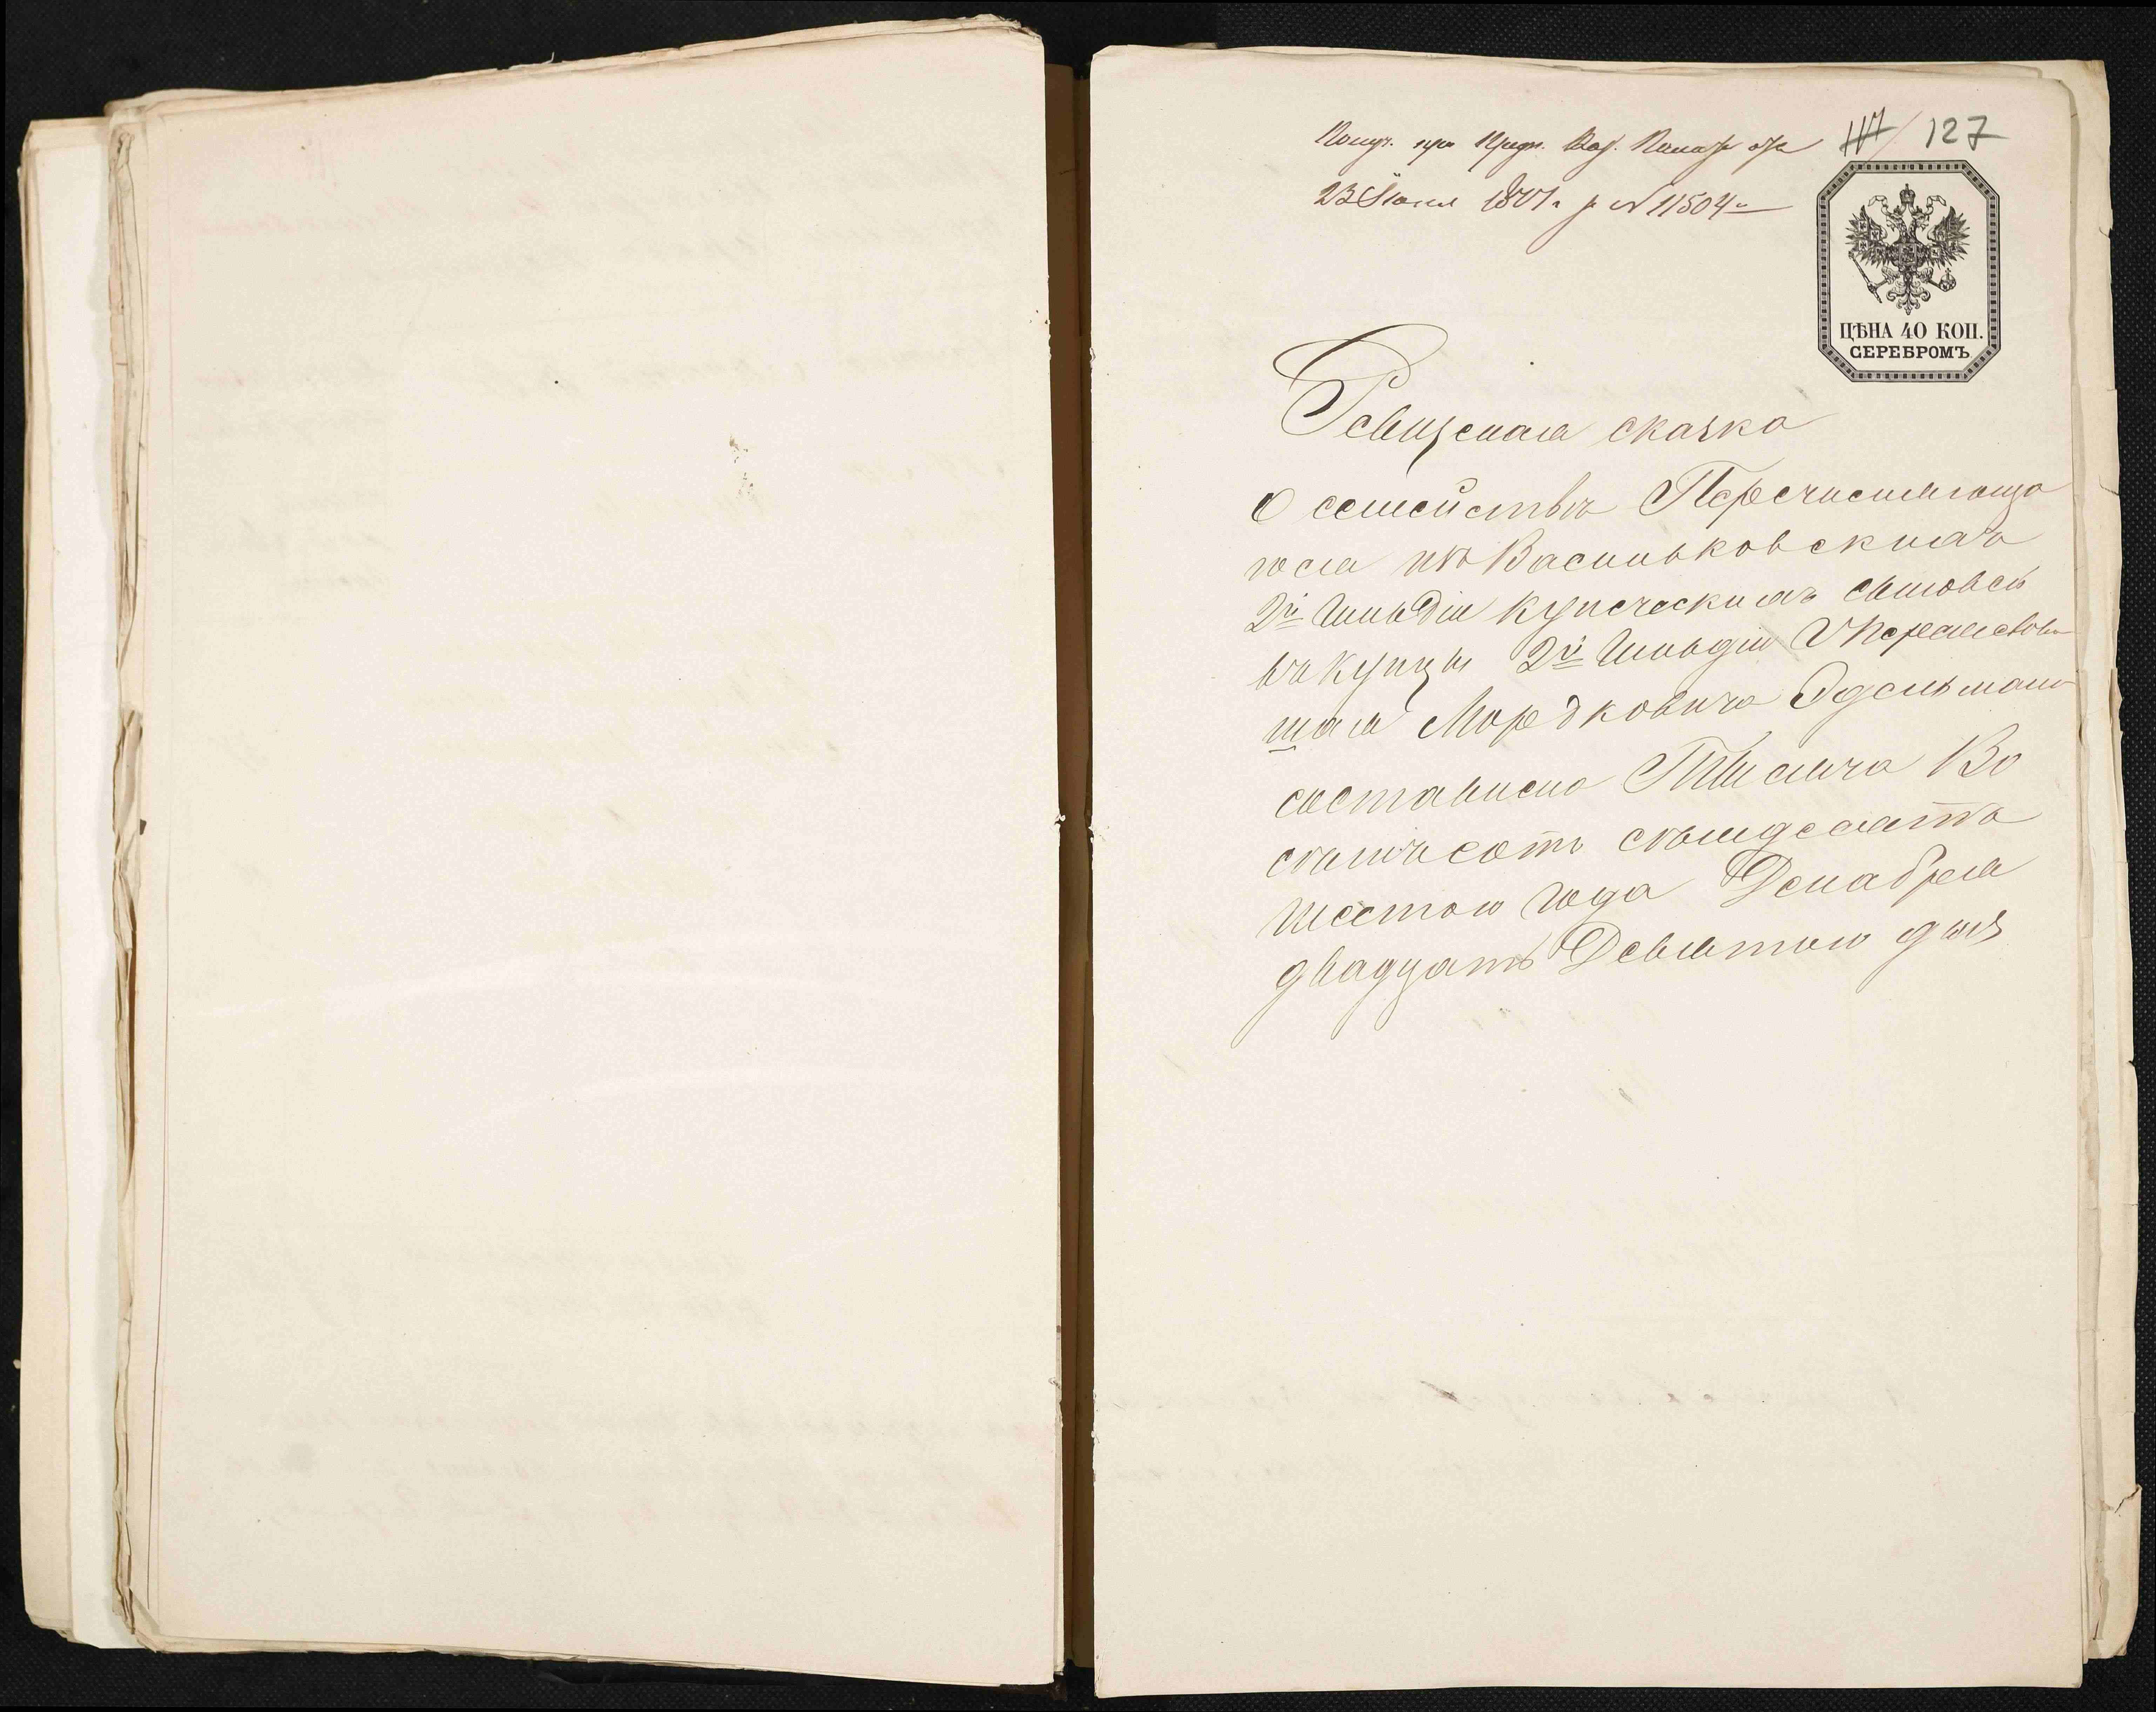 Получ. при Предп. Каз. Палаты отъ
117/ 127
23 Июня 1877 г. за №11504м
ЦѢНА 40 КОП.
СЕРЕБРОМЪ
Ревизская сказка
О семействѣ Перечисляюща
гося изъ Васильковскихъ
2й Гильдіи купеческихъ сыновей
въ купцы 2й Гильдіи
Мордковича Эдельмана
составлена Тысяча Во
семьсотъ семьдесятъ
шестого года Декабря
двадцать Девятого дня